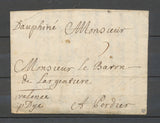 Dauphiné Monsieur
Monsieur le Baron
de Largentiere
valence
p Dye A Cordier